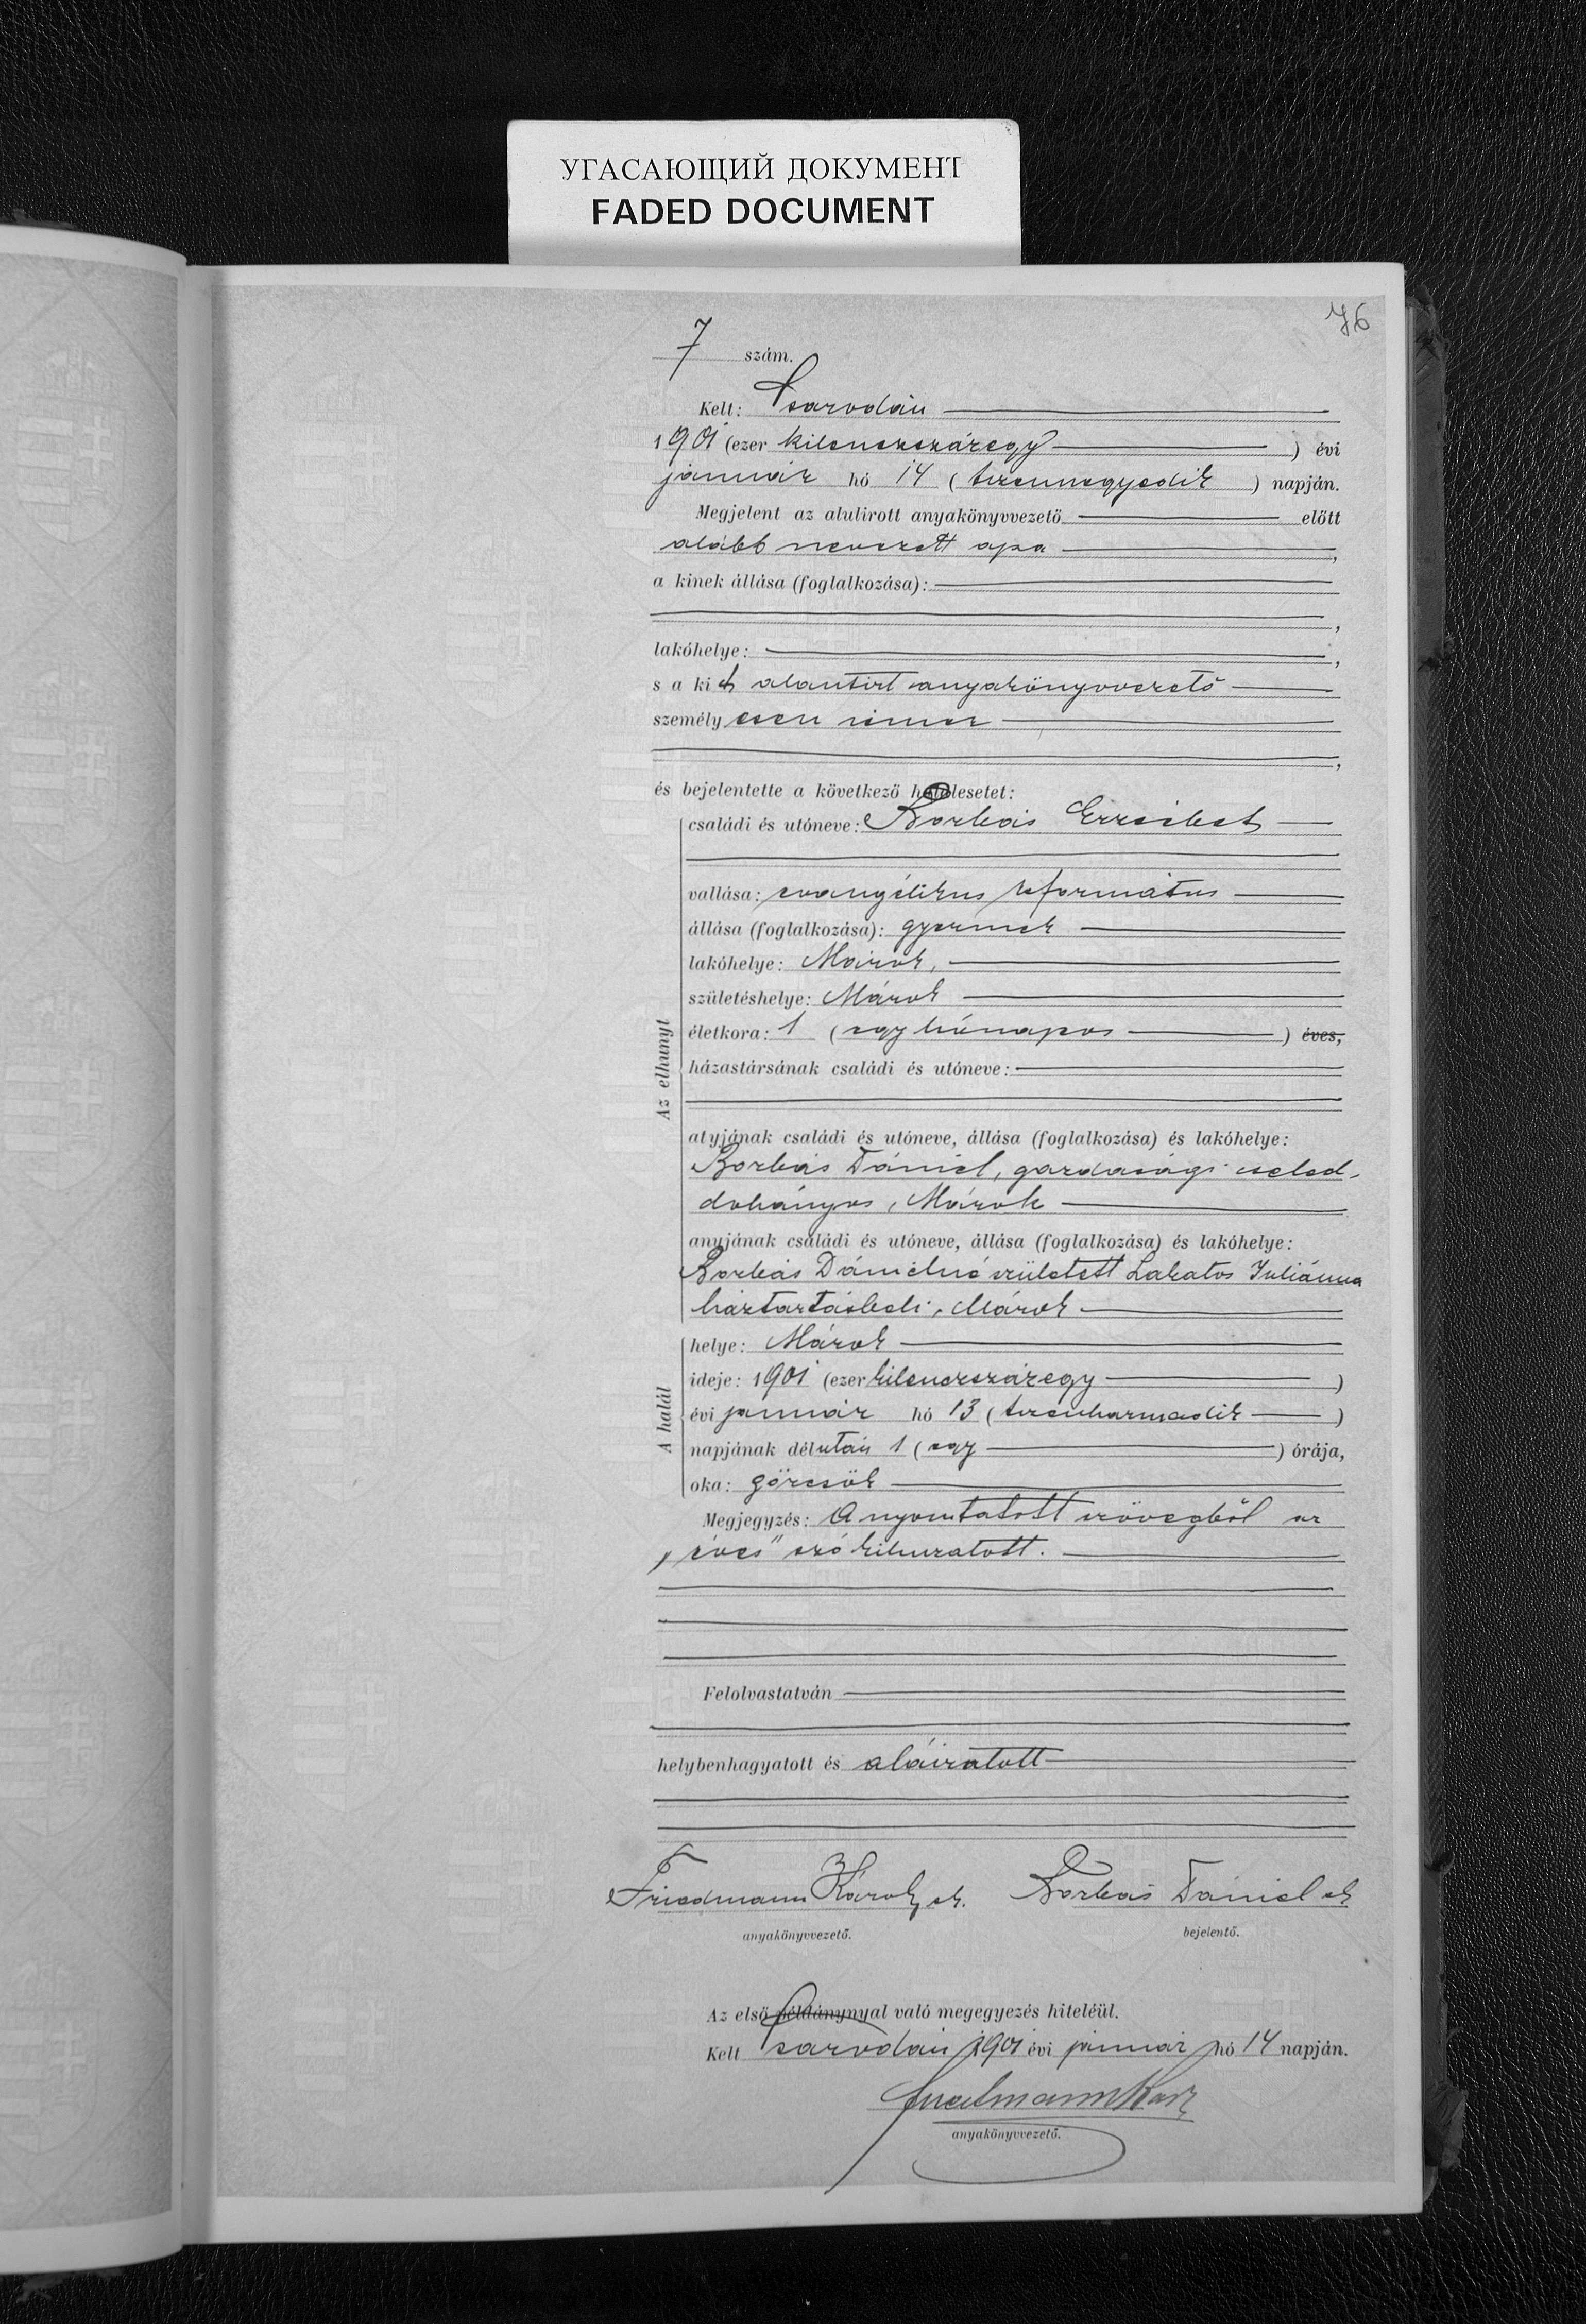 УГАСАЮЩИЙ ДОКУМЕНТ
FADED DOCUMENT
76
7 szám.
Kelt: Csarodán
1901 (ezer kilenczszázegy) évi
január hó 14 (tizennegyedik) napján.
Megjelent az alulirott anyakönyvvezető előtt
alább nevezett apa,
a kinek állása (foglalkozása):
,
lakóhelye: ,
s a kit alantirt anyakönyvvezető
személyesen ismer
,
és bejelentette a következő halálesetet:
Az elhunyt
családi és utóneve: Borbás Erzsébet
vallása: evangélikus református
állása (foglalkozása): gyermek
lakóhelye: Márok,
születéshelye: Márok
életkora: 1 (egy hónapos) éves,
házastársának családi és utóneve:
atyjának családi és utóneve, állása (foglalkozása) és lakóhelye:
Borbás Dániel, gazdasági cseled-
dohányos, Márok
anyjának családi és utóneve, állása (foglalkozása) és lakóhelye:
Borbás Dánielné született Lakatos Juliánna
háztartásbeli, Márok
A halál
helye: Márok
ideje: 1901 (ezer kilenczszázegy)
évi január hó 13 (tizenharmadik)
napjának délután 1 (egy) órája,
oka: görcsök
Megjegyzés: A nyomtatott szövegből az
„éves" szó kihuzatott.
Felolvastatván
helybenhagyatott és aláiratott
Friedmann Károly sk. Borbás Dániel sk
anyakönyvvezető. bejelentő.
Az első példánynyal való megegyezés hiteléül.
Kelt Csarodán 1901 évi január hó 14 napján.
anyakönyvvezető.